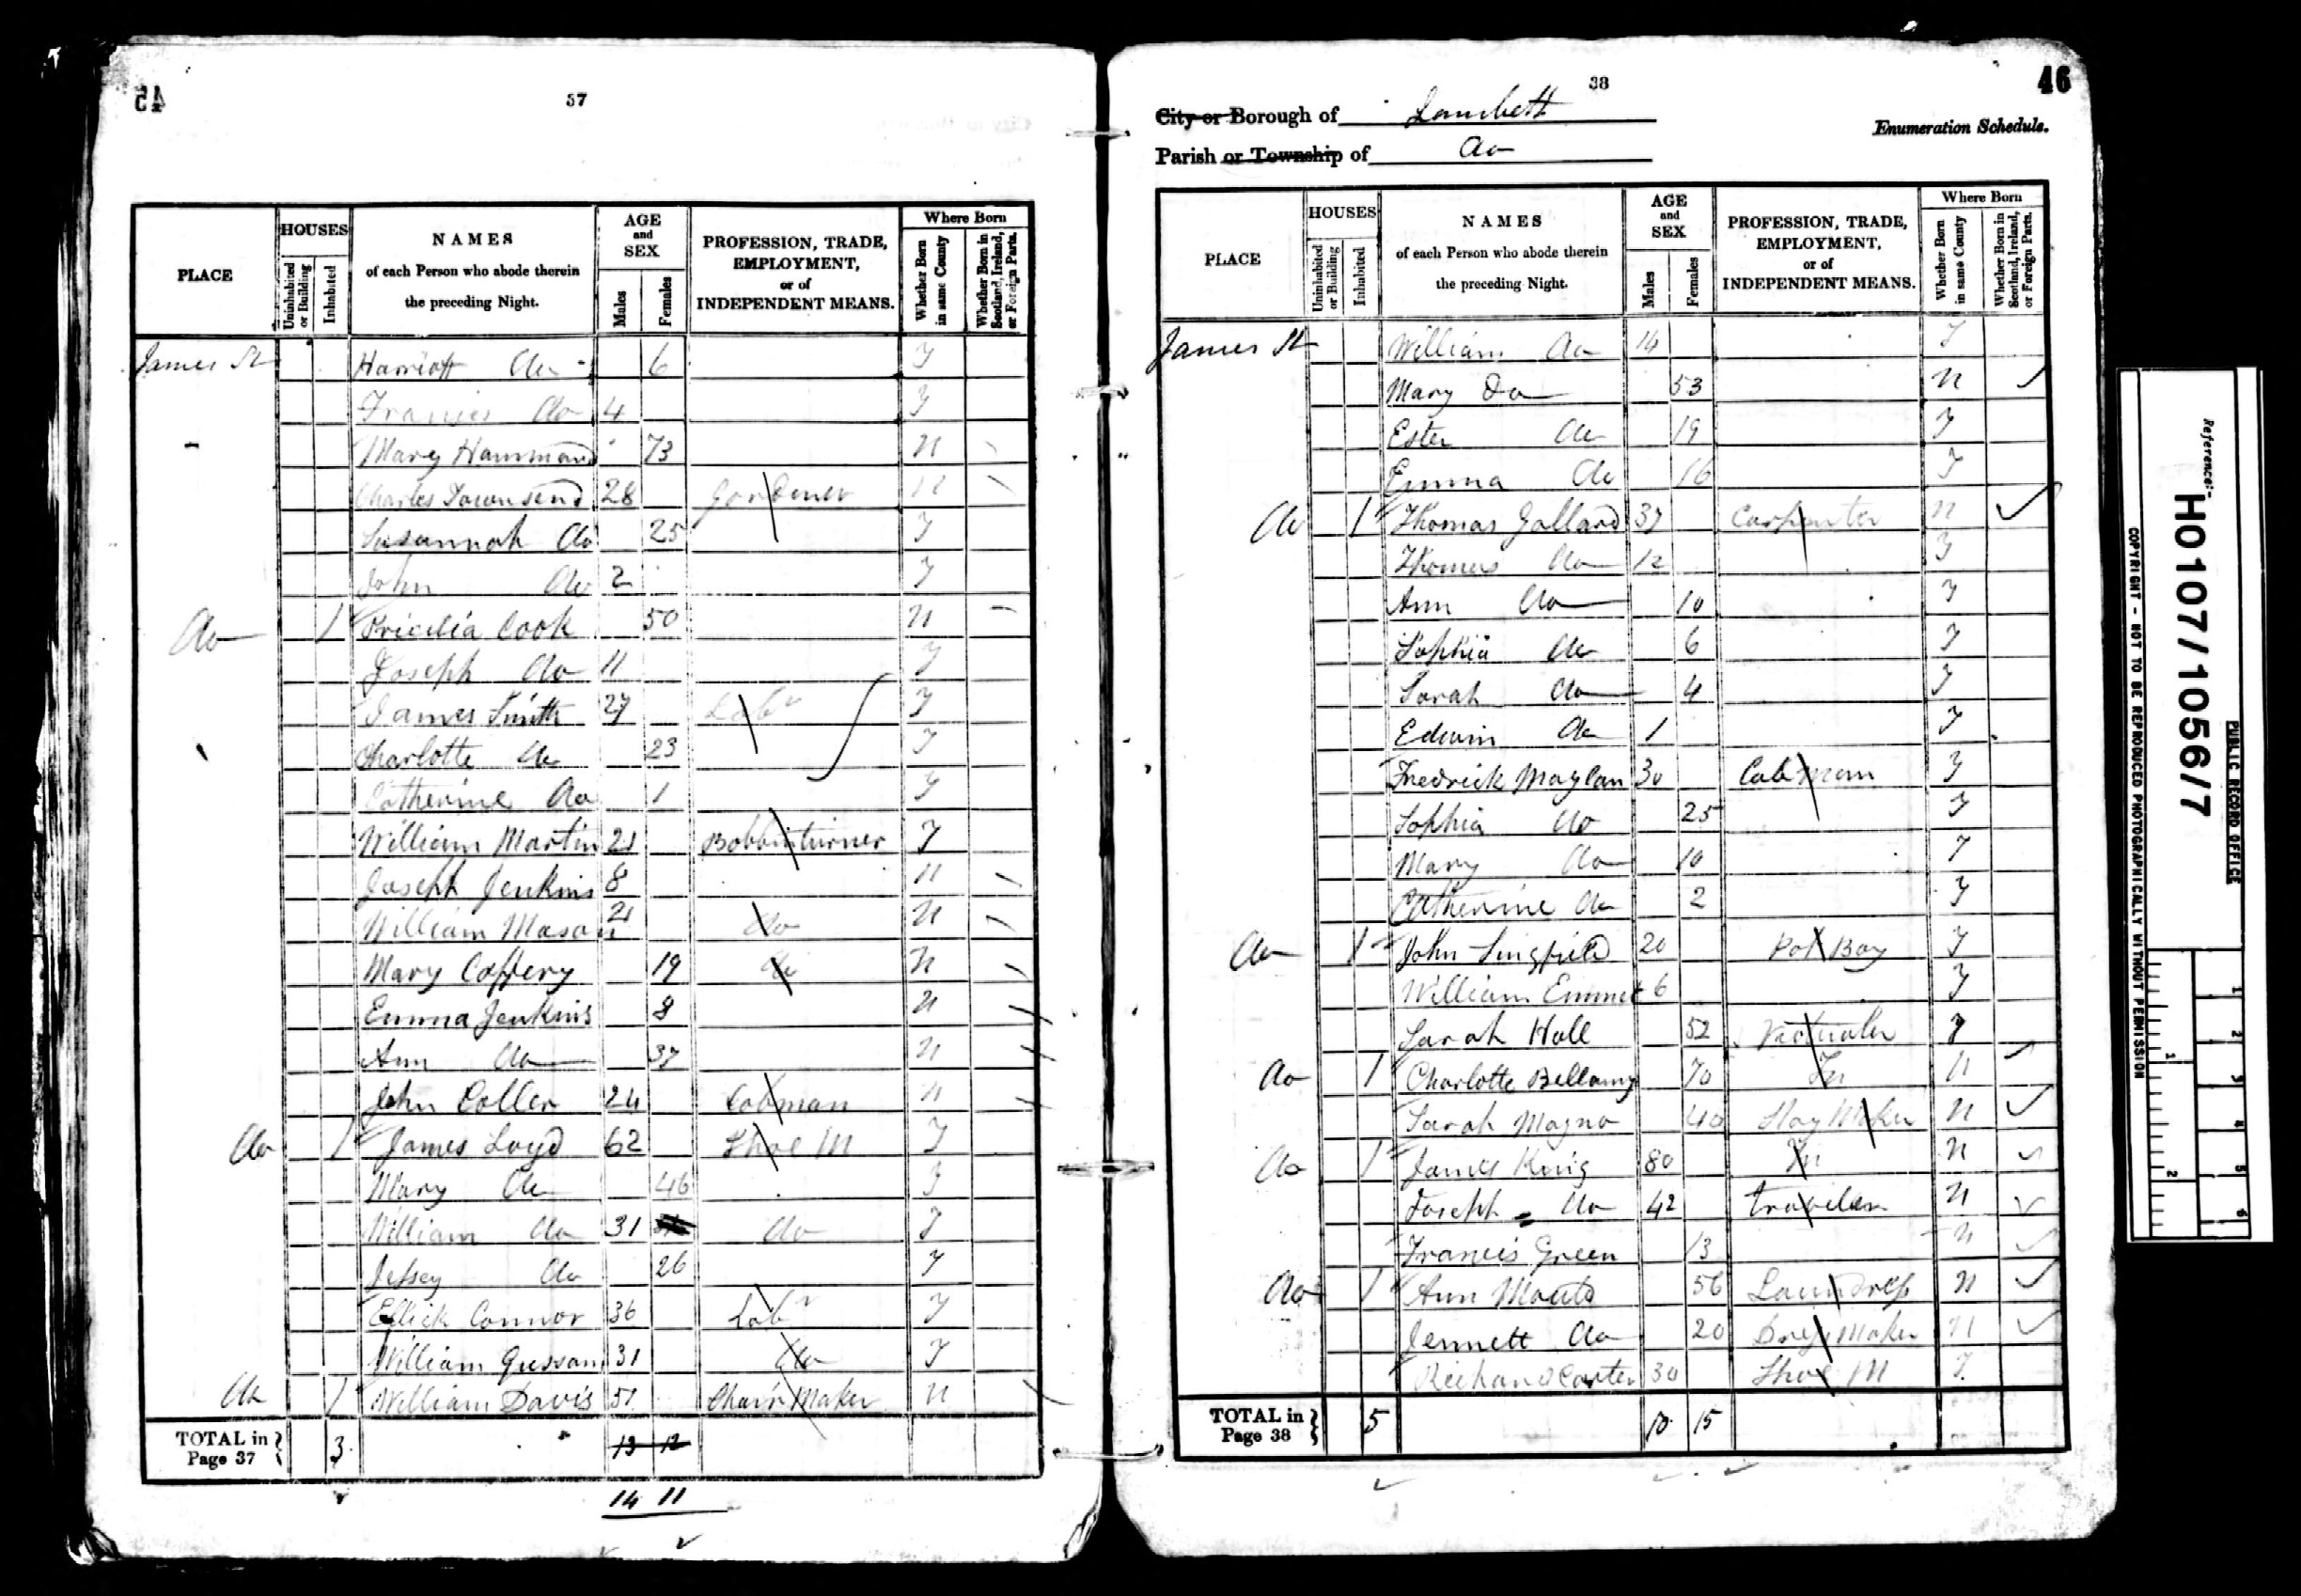 45
37
PLACE
HOUSES
Uninhabited or Building
Inhabited
NAMES
of each Person who abode therein
the preceding Night.
AGE
and
SEX
Males
Females
PROFESSION, TRADE,
EMPLOYMENT,
or of
INDEPENDENT MEANS.
Where Born
Whether Born in same County
Whether Born in Scotland, Ireland, or Foreign Parts.
James St Harriott do 6 Y
Francis do 4 Y
Mary Hammond 73 N
Charles Townsend 28 Gardener N
Susannah do 25 Y
John do 2 Y
do 1 Pricilia Cook 50 N
Joseph do 11 Y
James Smith 27 Labr Y
Charlotte do 23 Y
Catherine do 1 Y
William Martin 21 Bobbinturner Y
Joseph Jenkins 8 N
William Mason 21 do N
Mary Coffery 19 do N
Emma Jenkins 8 N
Ann do 37 N
John Coller 24 Cobman N
do 1 James Loyd 62 Shoe M Y
Mary do 46 Y
William do 31 do Y
Jessey do 26 Y
Ellick Connor 36 Labr Y
William 31 do Y
do 1 William Davis 51 Chair Maker N
TOTAL in
Page 37 3 13 12
14 11
38
46
City or Borough of Lambeth
Enumeration Schedule.
Parish or Township of do
PLACE
HOUSES
Uninhabited or Building
Inhabited
NAMES
of each Person who abode therein
the preceding Night.
AGE
and
SEX
Males
Females
PROFESSION, TRADE,
EMPLOYMENT,
or of
INDEPENDENT MEANS.
Where Born
Whether Born in same County
Whether Born in Scotland, Ireland, or Foreign Parts.
James St William do 14 Y
Mary Do 53 N
Ester do 19 Y
Emma do 16 Y
do 1 Thomas Gollard 37 Carpenter N
Thomas do 12 Y
Ann do 10 Y
Sophia do 6 Y
Sarah do 4 Y
Edwin do 1 Y
Fredrick Maylan 30 Cabman Y
Sophia do 25 Y
Mary do 10 Y
Catherine do 2 Y
do 1 John Lingfield 20 Pot Boy Y
William Emmet 6 Y
Sarah Hall 52 Victualer Y
do 1 Charlotte Bellamy 70 In N
Sarah Magno 40 Stay Maker N
do 1 James King 80 In N
Joseph do 42 traveler N
Francis Green 13 N
do 1 Ann 56 Laundress N
Jennett do 20 Dres Maker N
Reichand Carter 30 Shoe M Y
TOTAL in
Page 38 5 10 15
Reference:-
HO107/1056/7
PUBLIC RECORD OFFICE
COPYRIGHT - NOT TO BE REPRODUCED PHOTOGRAPHICALLY WITHOUT PERMISSION
1 2
1 2 3 4 5 6